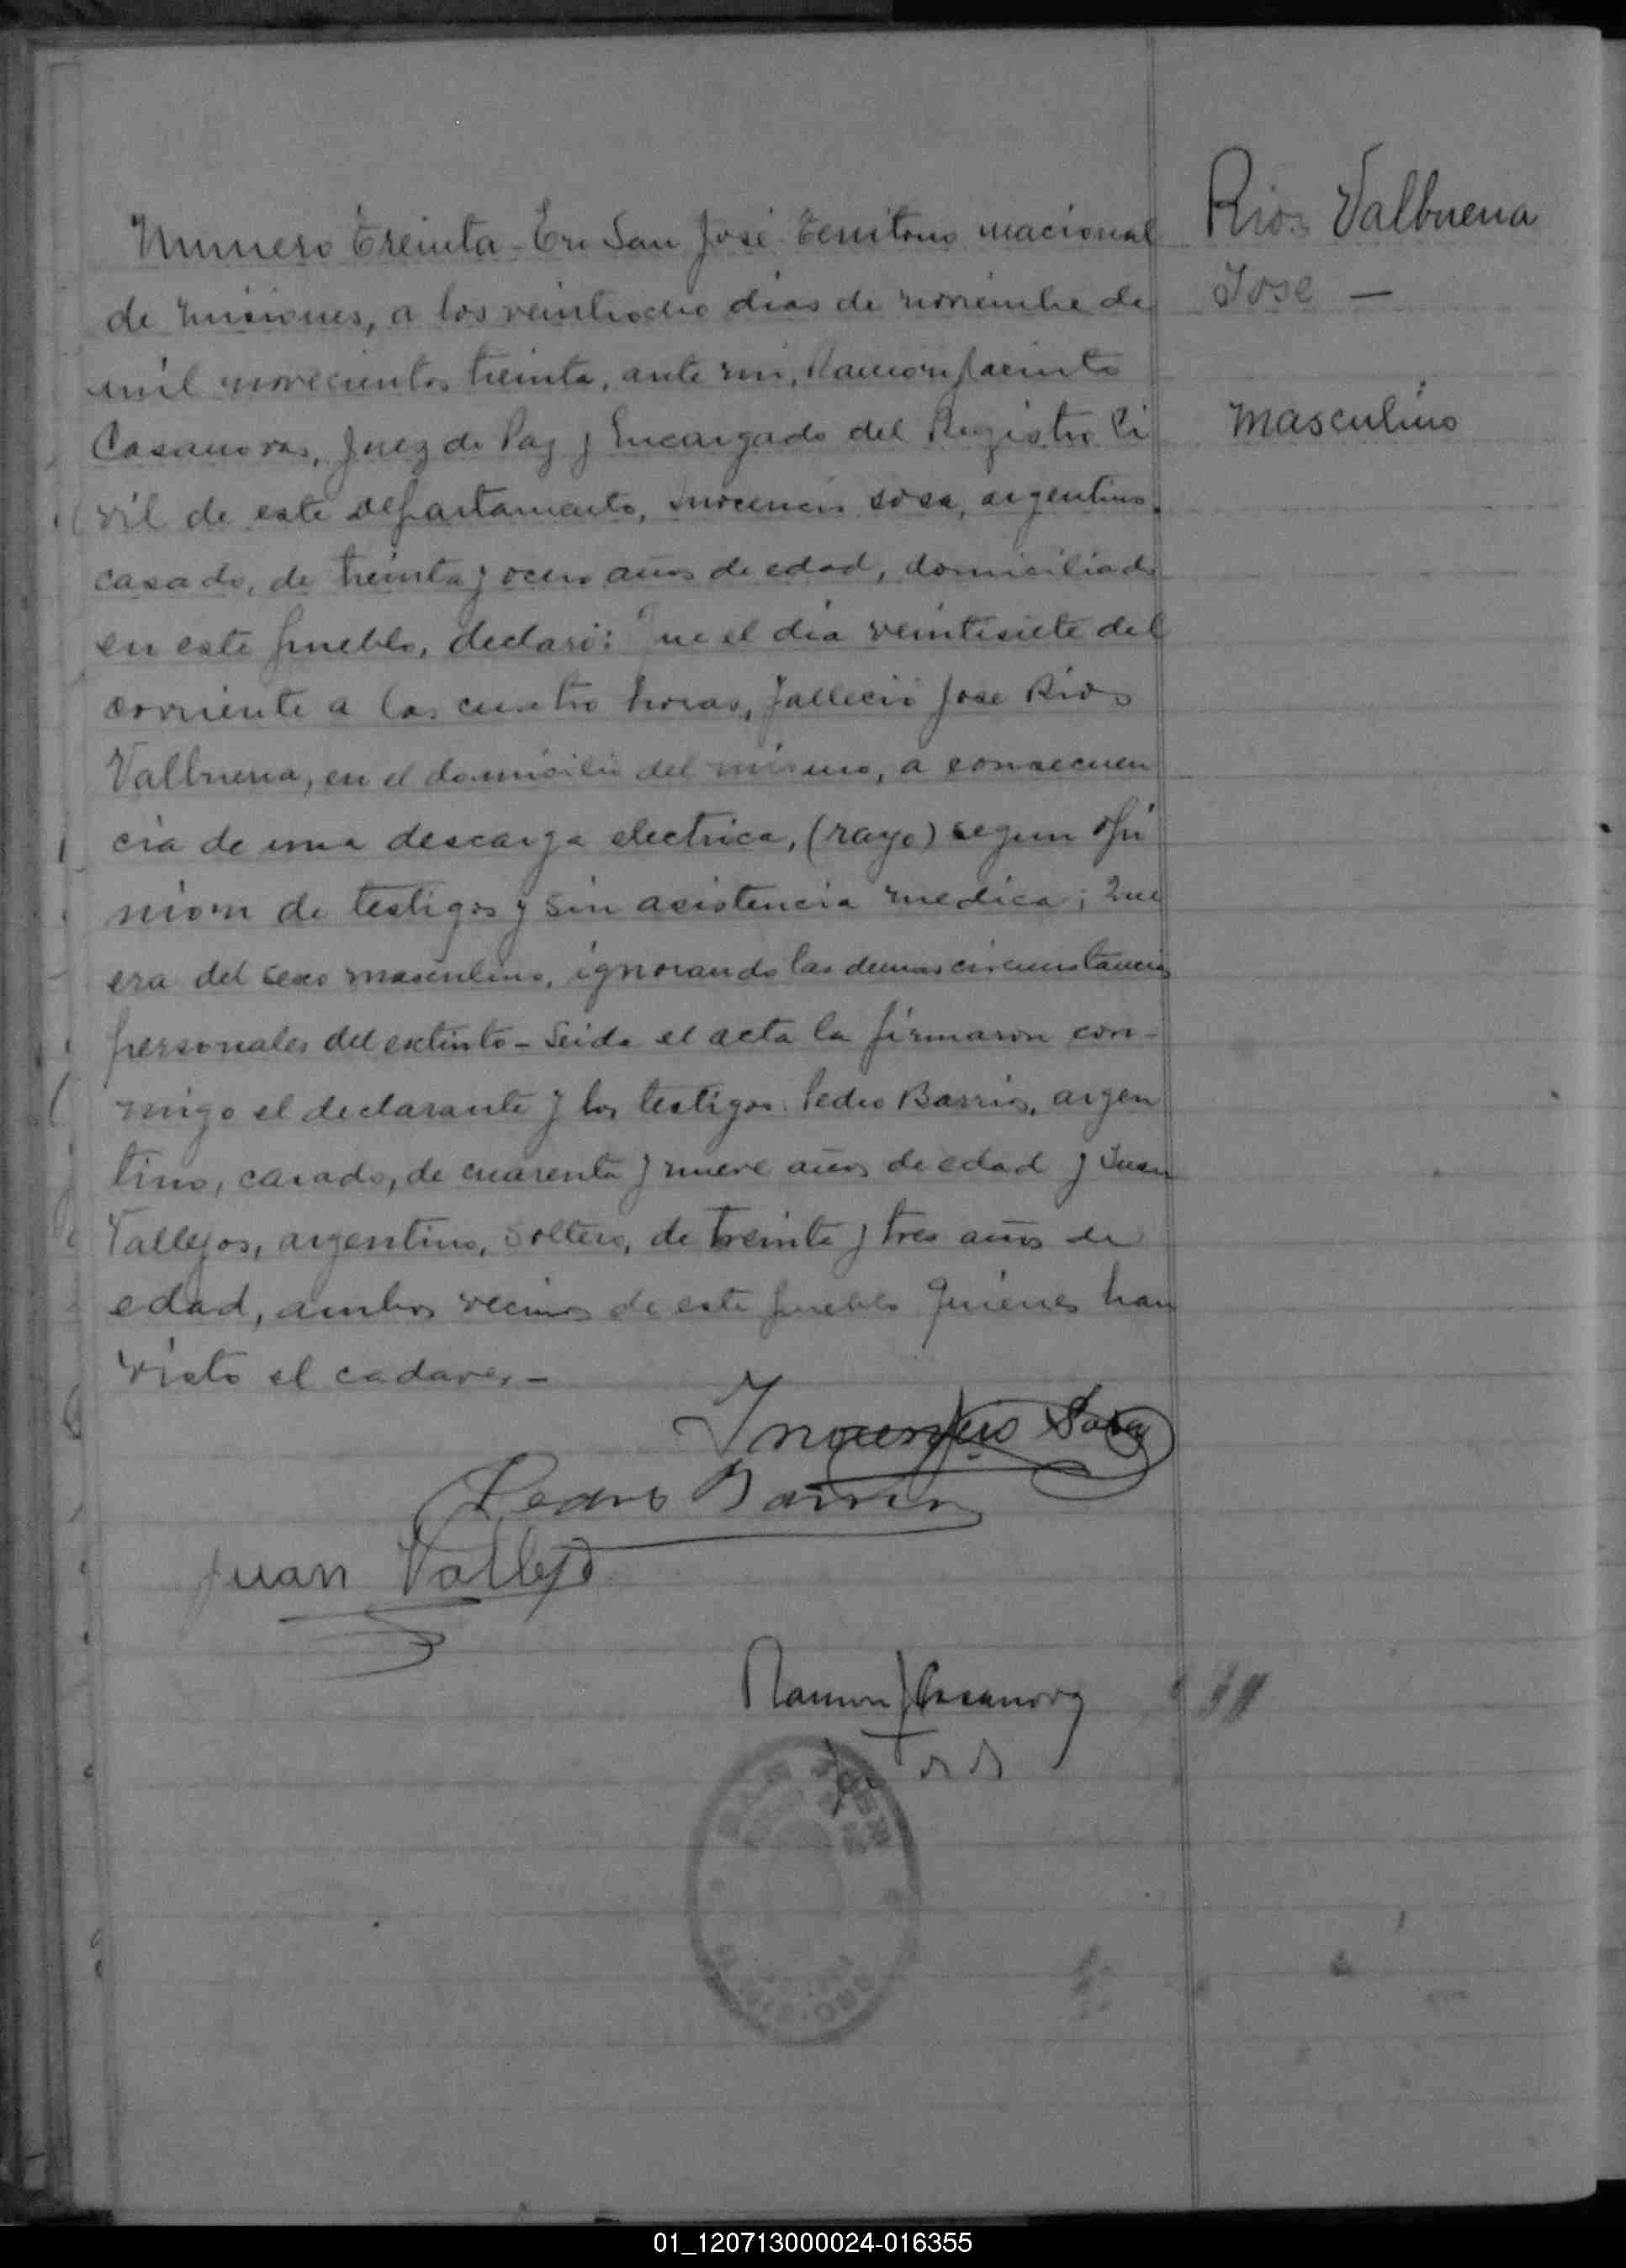 Rios Valbuena
Jose —
masculino
Numero treinta - En San José territorio nacional
de misiones, a los veintiocho dias de noviembre de
mil novecientos treinta, ante mi, Ramon Jacinto
Casanovas, Juez de Paz y Encargado del Registro Ci
vil de este departamento, inocencio sosa, argentino,
casado, de treinta y ocho años de edad, domiciliado
en este pueblo, declaró: Que el dia veintisiete del
corriente a las cuatro horas, falleció Jose Rios
Valbuena, en el domicilio del mismo, a consecuen
cia de una descarga electrica, (rayo) segun opi
nion de testigos y sin asistencia medica; Que
era del sexo masculino, ignorando las demas circunstancias
personales del extinto - Leida el acta la firmaron con-
migo el declarante y los testigos: Pedro Barrios, argen
tino, casado, de cuarenta y nueve años de edad y Juan
Vallejos, argentino, soltero, de treinta y tres años de
edad, ambos vecinos de este pueblo quienes han
visto el cadaver. -
Inocencio Sosa
Pedro Barrios
Juan Vallejo
Ramon J Casanova
SAN JOSE
01_120713000024-016355